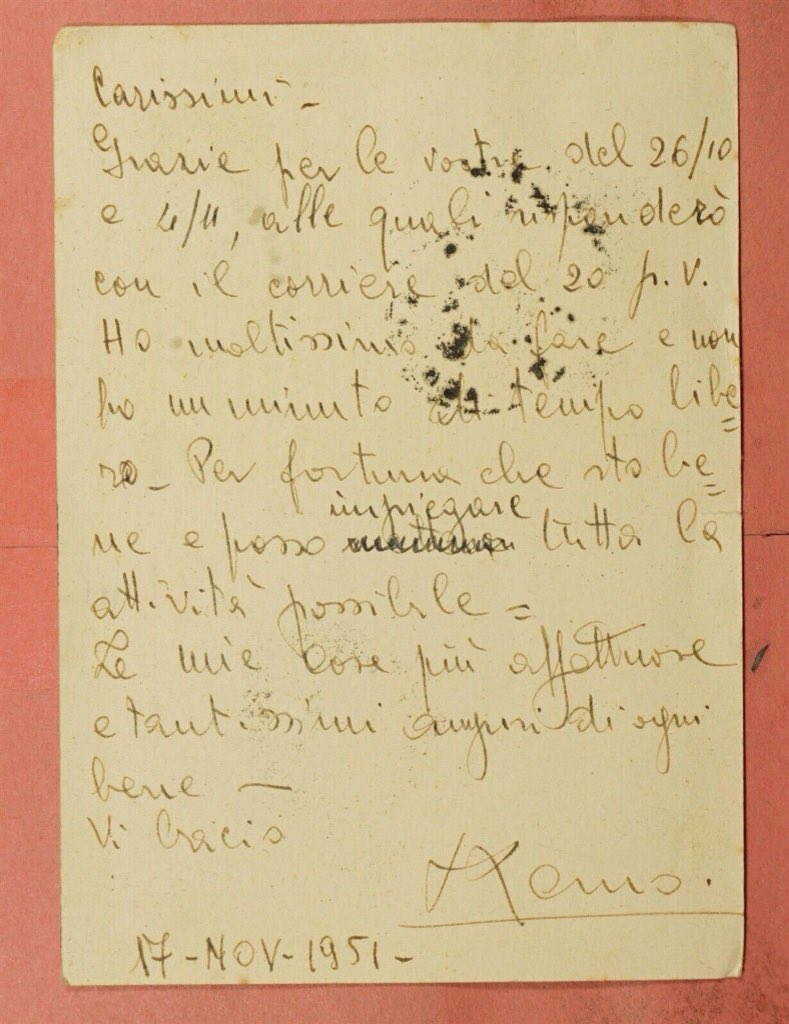 Carissimi -
Grazie per le vostre del 26/10
e 4/11, alle quali risponderò
con il corriere del 20 p.v.
Ho moltissimo da fare e non
ho un minuto di tempo libe=
ro - Per fortuna che sto be=
ne e posso impiegare tutta la
attività possibile =
Le mie cose più affettuose
e tantissimi auguri di ogni
bene -
Vi bacio
Remo.
17-NOV-1951-